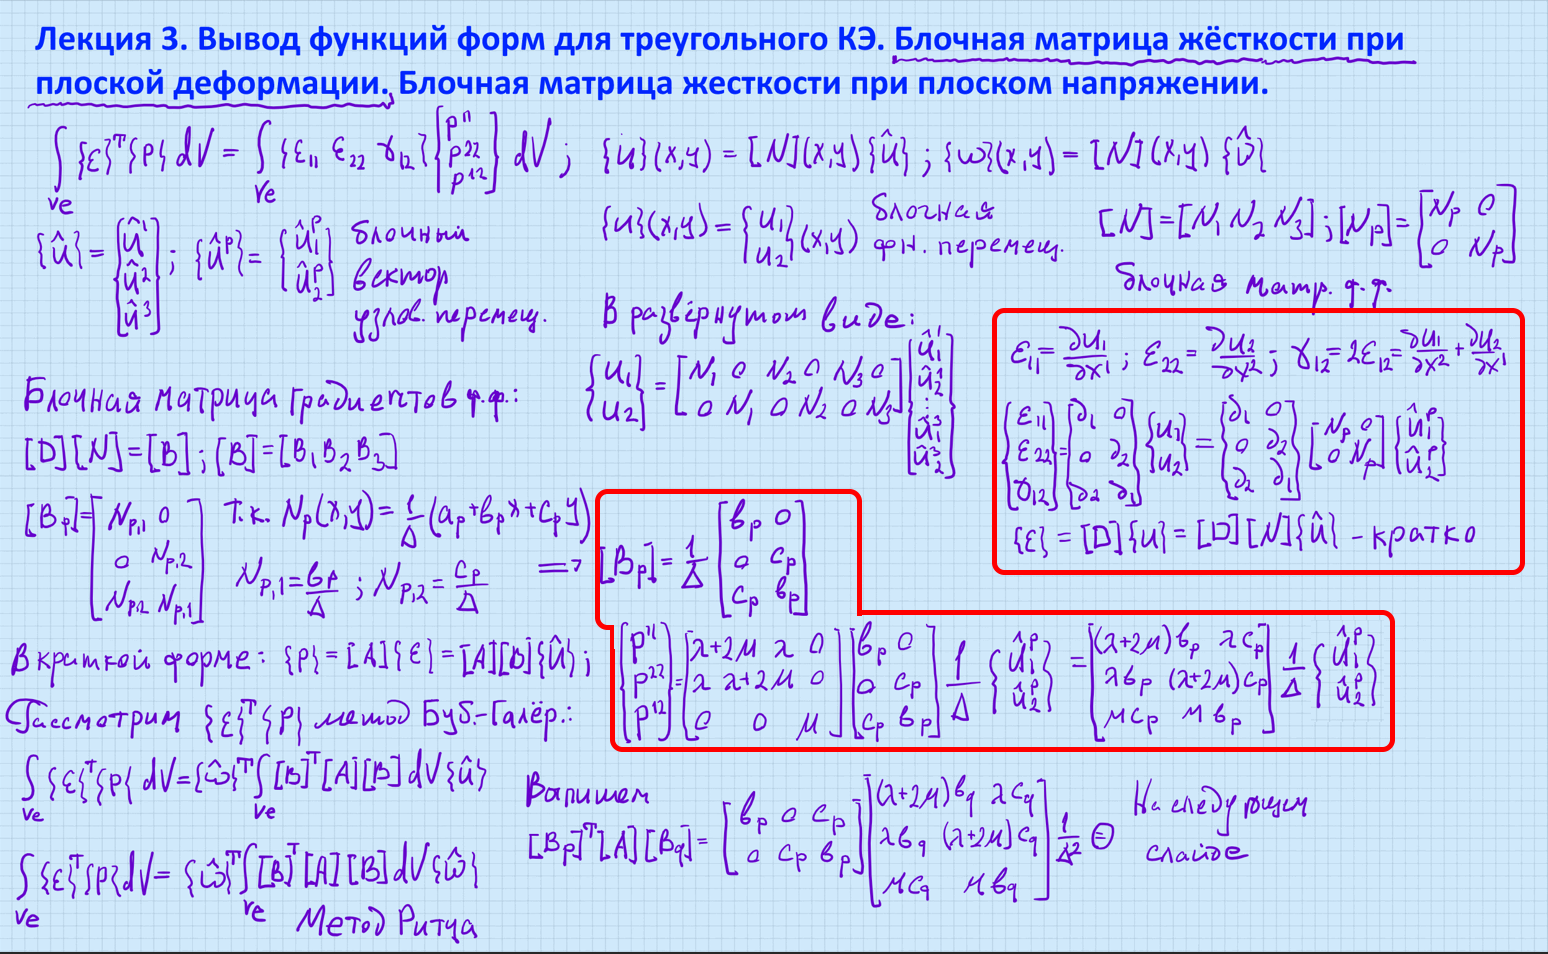 Лекция 3. Вывод функций форм для треугольного КЭ. Блочная матрица жёсткости при
плоской деформации. Блочная матрица жесткости при плоском напряжении.
∫_{Ve} {ε}^T{P} dV = ∫_{Ve} {ε₁₁ ε₂₂ γ₁₂} [P¹¹ P²² P¹²] dV ; {u}(x,y) = [N](x,y){û} ; {ω}(x,y) = [N](x,y){υ̂}
{û} = [û¹ û² û³] ; {û^P} = {û₁^P û₂^P} блочный вектор узлов. перемещ.
{u}(x,y) = {u₁ u₂}(x,y) блочная фн. перемещ.
[N] = [N₁ N₂ N₃] ; [N_P] = [N_P 0; 0 N_P]
блочная матр. ф.ф.
В развёрнутом виде:
{u₁ u₂} = [N₁ 0 N₂ 0 N₃ 0; 0 N₁ 0 N₂ 0 N₃] [û₁¹ û₂¹ ⋮ û₁³ û₂³]
ε₁₁ = ∂u₁/∂x¹ ; ε₂₂ = ∂u₂/∂x² ; γ₁₂ = 2ε₁₂ = ∂u₁/∂x² + ∂u₂/∂x¹
{ε₁₁ ε₂₂ γ₁₂} = [∂₁ 0; 0 ∂₂; ∂₂ ∂₁] {u₁ u₂} = [∂₁ 0; 0 ∂₂; ∂₂ ∂₁] [N_P 0; 0 N_P] {û₁^P û₂^P}
{ε} = [D]{u} = [D][N]{û} – кратко
Блочная матрица градиентов ф.ф.:
[D][N] = [B] ; [B] = [B₁ B₂ B₃]
[B_P] = [N_{P,1} 0; 0 N_{P,2}; N_{P,2} N_{P,1}] т.к. N_P(x,y) = 1/Δ (a_P + в_P x + c_P y)
N_{P,1} = в_P/Δ ; N_{P,2} = c_P/Δ ⟹ [B_P] = 1/Δ [в_P 0; 0 c_P; c_P в_P]
В краткой форме: {P} = [A]{ε} = [A][B]{û} ;
[P¹¹ P²² P¹²] = [λ+2μ λ 0; λ λ+2μ 0; 0 0 μ] [в_P 0; 0 c_P; c_P в_P] 1/Δ {û₁^P û₂^P} = [(λ+2μ)в_P λc_P; λв_P (λ+2μ)c_P; μc_P μв_P] 1/Δ {û₁^P û₂^P}
Рассмотрим {ε}^T{P} метод Буб.-Галёр.:
∫_{Ve} {ε}^T{P} dV = {ω̂}^T ∫_{Ve} [B]^T[A][B] dV {û}
∫_{Ve} {ε}^T{P} dV = {ω̂}^T ∫_{Ve} [B]^T[A][B] dV {ω̂}
Метод Ритца
Выпишем
[B_P]^T[A][B_q] = [в_P 0 c_P; 0 c_P в_P] [(λ+2μ)в_q λc_q; λв_q (λ+2μ)c_q; μc_q μв_q] 1/Δ² ⊜
На следующем
слайде